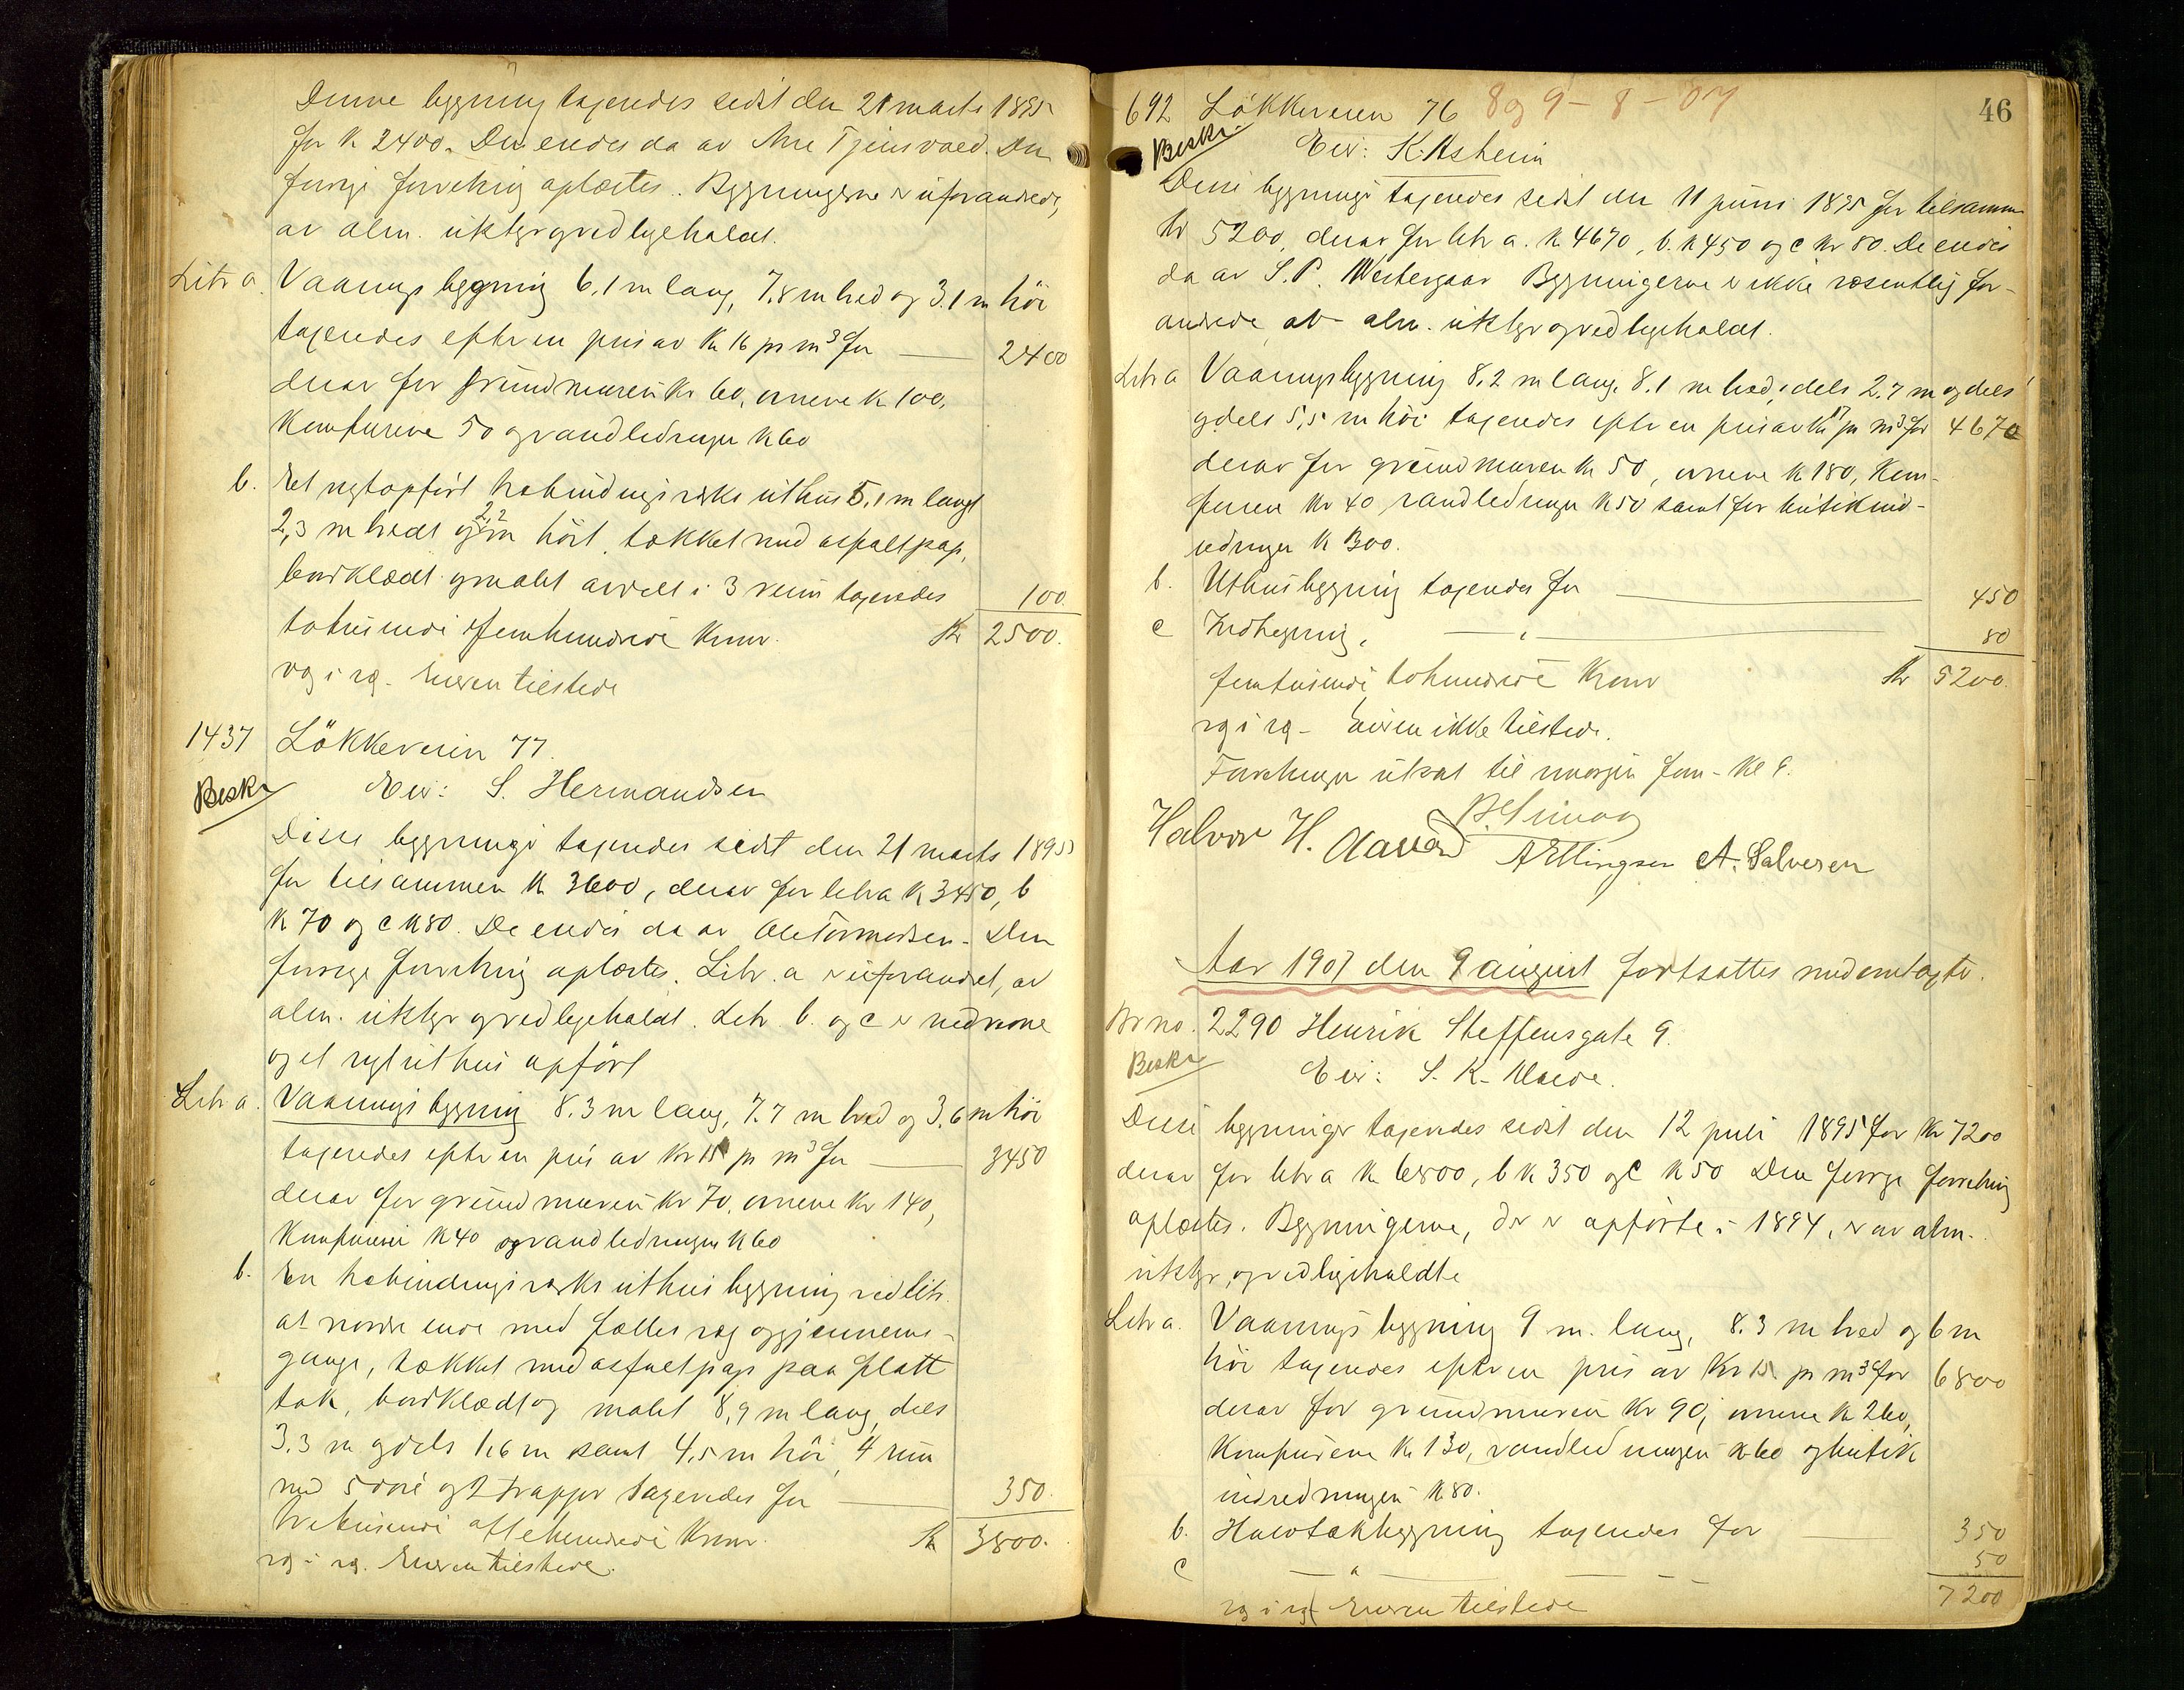 Denne bygning taxeredes sidst den 21 marts 1895
for kr 2400. Den eiedes da av Ane Tjensvold. Den
forrige forretning oplæstes. Bygningerne er uforandrede,
av alm. utstyr og vedligeholdt.
Litr a. Vaaningsbygning 6,1 m lang, 7,8 m bred og 3,1 m høi
taxeredes efter en pris av Kr 16 pr m³ for 2400
derav for grundmuren kr 60, ovnene kr 100,
Komfurene 50 og vandledningen kr 60
b. Et nyt opført halvindingsverks uthus 5,1 m langt
2,3 m bredt og 2,2 m høit, tækket med asfaltpap,
bordklædt og malt avdelt i 3 rum taxeredes 100.
totusinde femhundrede Kroner. Kr 2500.
vg i vg. Eieren tilstede
1437 Lökkeveien 77.
Beskr Eier: S. Hermandsen
Disse bygninger taxeredes sidst den 21 marts 1895
for tilsammen kr 3600, derav for litr a kr 3450, b
kr 70 og c kr 80. De eiedes da av Ole Tormodsen. Den
forrige forretning oplæstes. Litr. a er uforandret, av
alm. utstyr og vedligeholdt. Litr. b. og c er nedrevne
og et nyt uthus opført
Litr a. Vaaningsbygning 8.3 m lang, 7.7 m bred og 3,6 m høi
taxeredes efter en pris av Kr 15 pr m³ for 3450
derav for grundmuren Kr 70, ovnene Kr 140,
Komfurene kr 40 og vandledningen kr 60
b. En halvindingsverks uthusbygning ved litr.
a's nordre ende med fælles væg og gjennem-
gange, tækket med asfaltpap paa flatt
tak, bordklædt og malet 8,9 m lang, dels
3.3 m og dels 1,6 m samt 4,5 m høi, 4 rum
med 5 döre og 2 trapper taxeredes for 350.
tretusinde ottehundrede Kroner. Kr 3800.
vg i vg. Eieren tilstede.
46
692 Lökkeveien 76 8 og 9 - 8 - 07
Beskr. Eier: K. Asheim
Disse bygninger taxeredes sidst den 11 juni 1895 for tilsammen
kr 5200, derav for litr a. kr 4670, b. kr 450 og c kr 80. De eiedes
da av S. P. Westergaar Bygningerne er ikke væsentlig for-
andrede av alm. utstyr og vedligeholdt.
Litr a Vaaningsbygning 8.2 m lang, 8.1 m bred, dels 2.7 m og dels
og dels 5,5 m høi taxeredes efter en pris av kr 17 pr m³ for 4670
derav for grundmuren kr 50, ovnene kr 180, Kom-
furen kr 40 vandledningen kr 50 samt for butikind-
redningen kr 300.
b. Uthusbygning taxeredes for 450
c Indhegning, 80
femtusinde tohundrede Kroner Kr 5200.
vg i vg - Eieren ikke tilstede.
Forretningen utsat til imorgen form - Kl 9.
Halvor H. Aavard A Ellingsen A. Salvesen
Aar 1907 den 9 august fortsattes med omtaxter.
Br no. 2290 Henrik Steffensgate 9.
Beskr Eier: S. K.
Disse bygninger taxeredes sidst den 12 juli 1895 for Kr 7200
derav for litr a kr 6800, b kr 350 og c kr 50 Den forrige forretning
oplæstes. Bygningerne, der er opførte i 1894, er av alm.
utstyr, og vedligeholdte
Litr a. Vaaningsbygning 9 m. lang, 8.3 m bred og 6 m
høi taxeredes efter en pris av Kr 15 pr m³ for 6800
derav for grundmuren Kr 90, ovnene kr 260,
Komfurene kr 130, vandledningen kr 60 og butik
indredningen kr 80.
b. Halvtakbygning taxeredes for 350
c 50
7200
vg i vg Eieren tilstede